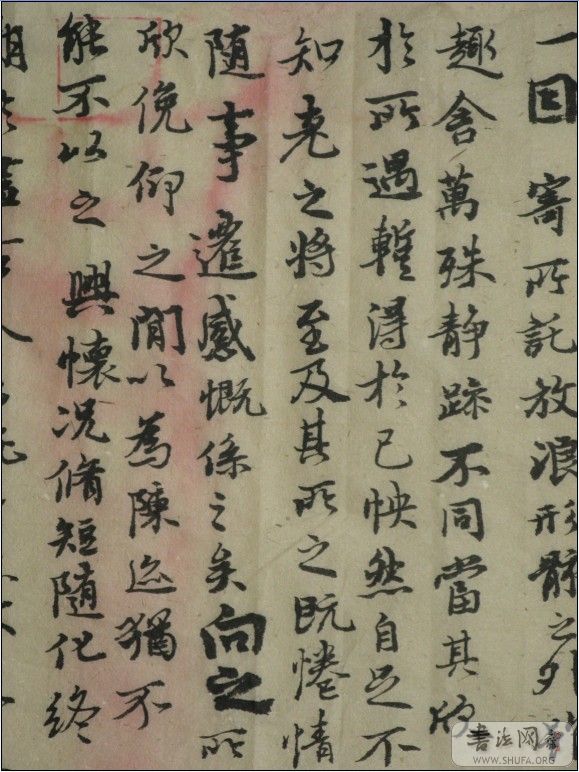 一囙寄所託放浪形骸之外
趣舍萬殊静躁不同當其欣
於所遇蹔得於己怏然自足不
知老之将至及其所之既惓情
随事遷感慨係之矣向之所
欣俛仰之閒以為陳迹猶不
能不以之興懷况脩短随化終
書法网
WWW.SHUFA.ORG